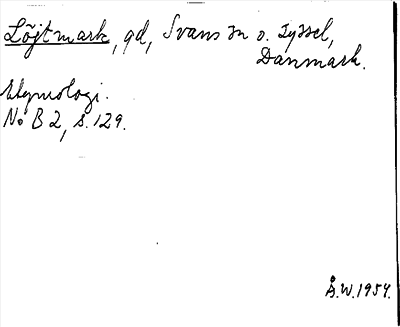 Löjtmark, gd, Svans sn o. Tyssel,
Danmark.
Etymologi.
No B 2, s. 129.
Å.W. 1954.